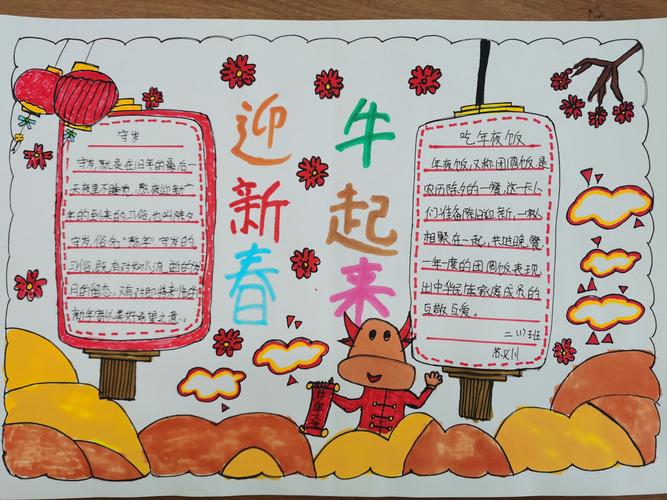 迎新春
牛起来
守岁
守岁，就是在旧年的最后一
天夜里不睡觉，熬夜迎新
年的到来的习俗，也叫除夕
守岁，俗名"熬年"守岁的
习俗，既有对如水流逝的岁
月的留恋，又有对即将来临的
新年寄以美好希望之意。
吃年夜饭
年夜饭，又称团圆饭，是
农历除夕的一餐，这一天人
们准备除旧迎新，一家人
相聚在一起，共进晚餐
一年一度的团圆饭表现
出中华民族家庭成员的
互敬互爱。
二
班